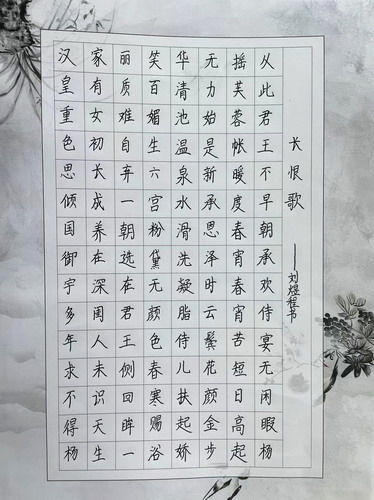 长恨歌
——刘煜程书
汉皇重色思倾国御宇多年求不得杨
家有女初长成养在深闺人未识天生
丽质难自弃一朝选在君王侧回眸一
笑百媚生六宫粉黛无颜色春寒赐浴
华清池温泉水滑洗凝脂侍儿扶起娇
无力始是新承思泽时云鬓花颜金步
摇芙蓉帐暖度春宵春宵苦短日高起
从此君王不早朝承欢侍宴无闲暇杨